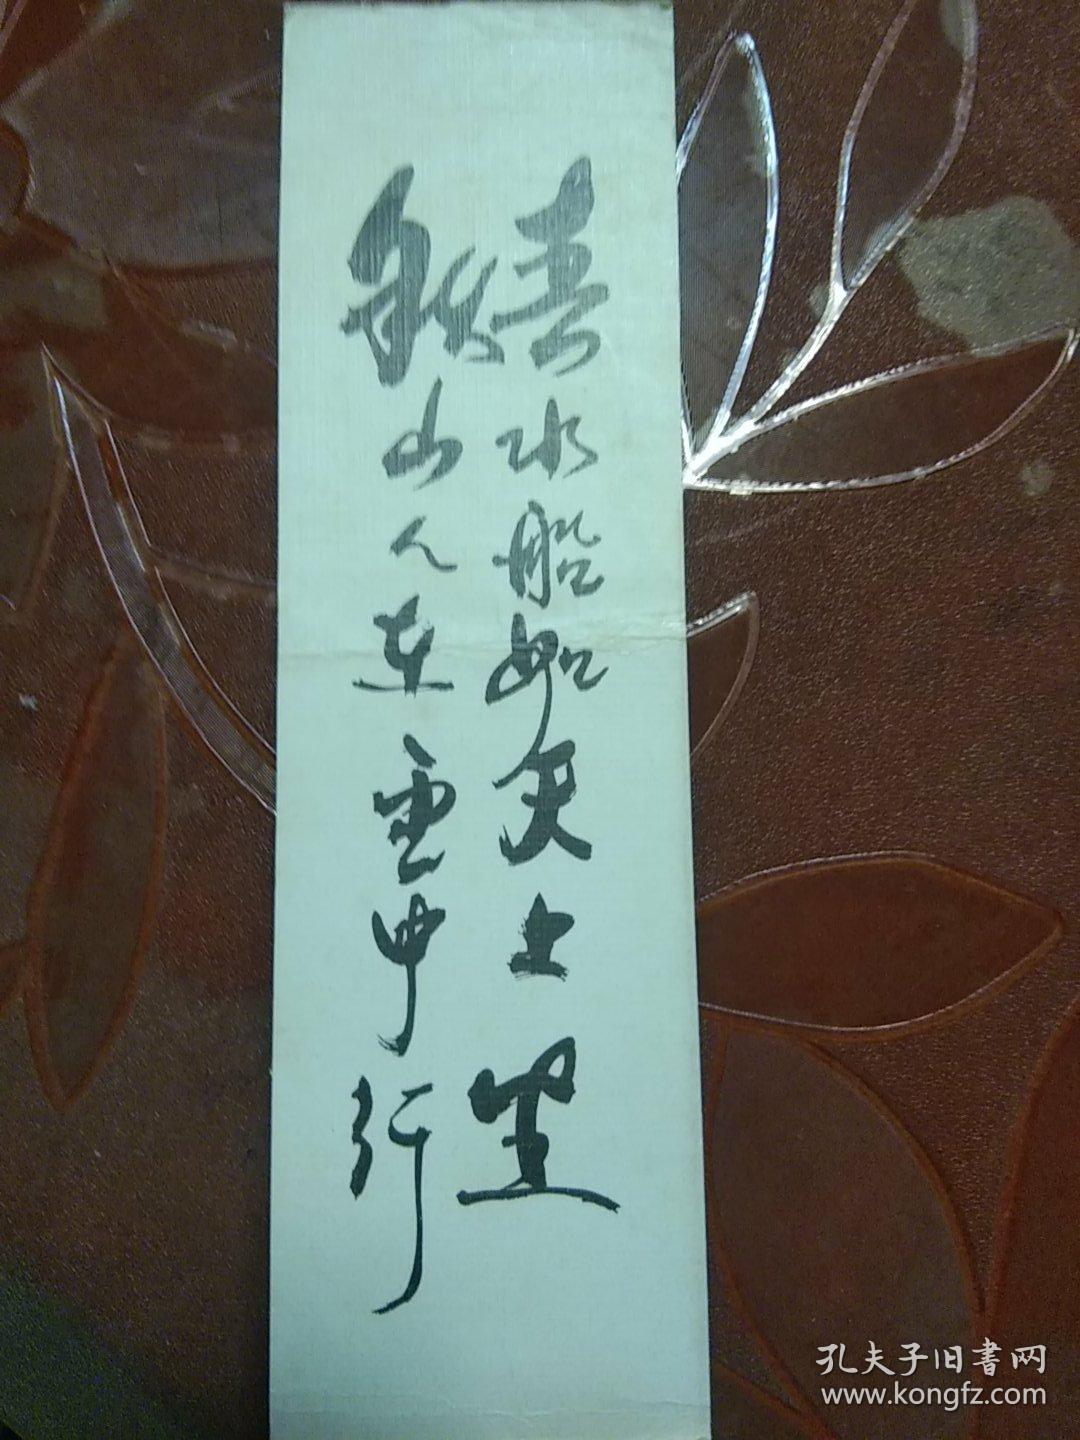 春水船如天上坐
秋山人在画中行
孔夫子旧書网
www.kongfz.com